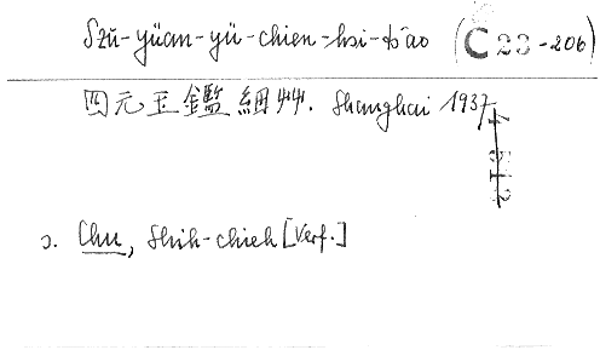 Szŭ-yüan-yü-chien-hsi-ts'ao (C 23-206)
四元玉鑑細艸. Shanghai 1937
s. Chu, Shih-chieh [Verf.]